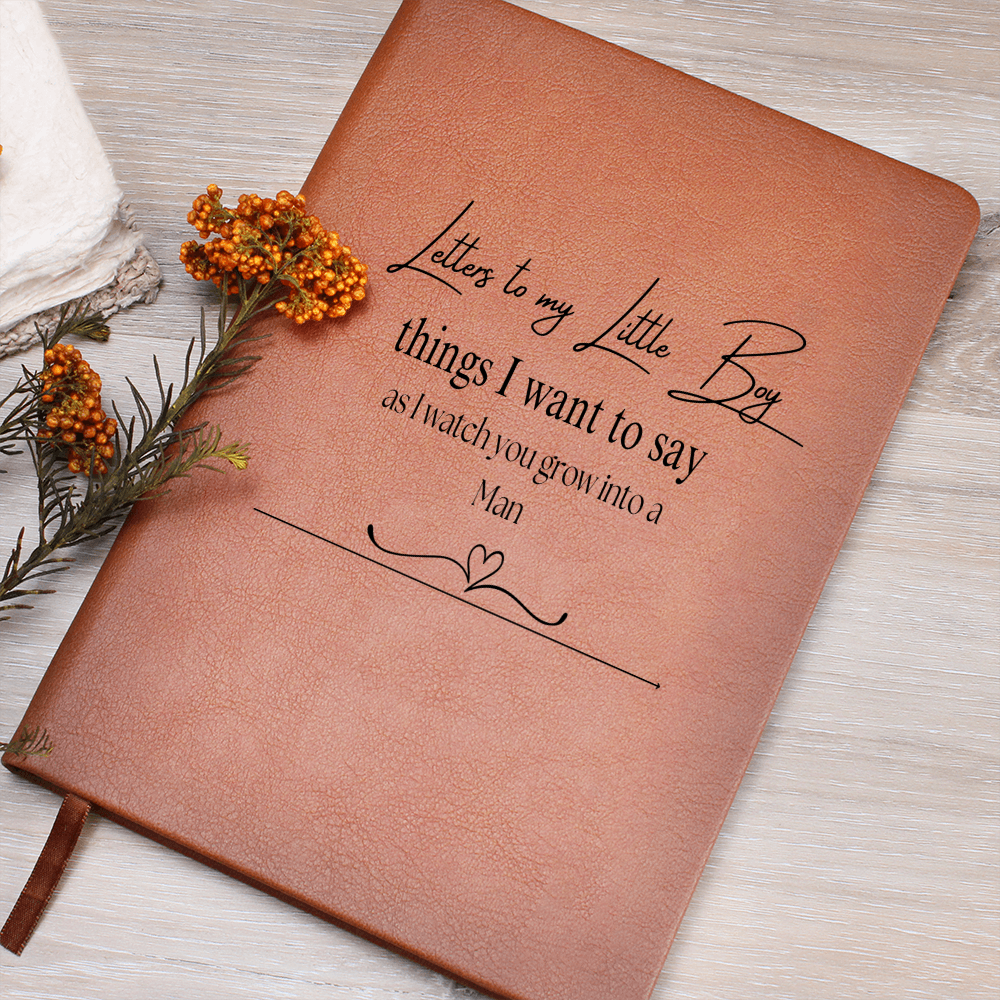 Letters to my Little Boy
things I want to say
as I watch you grow into a
Man